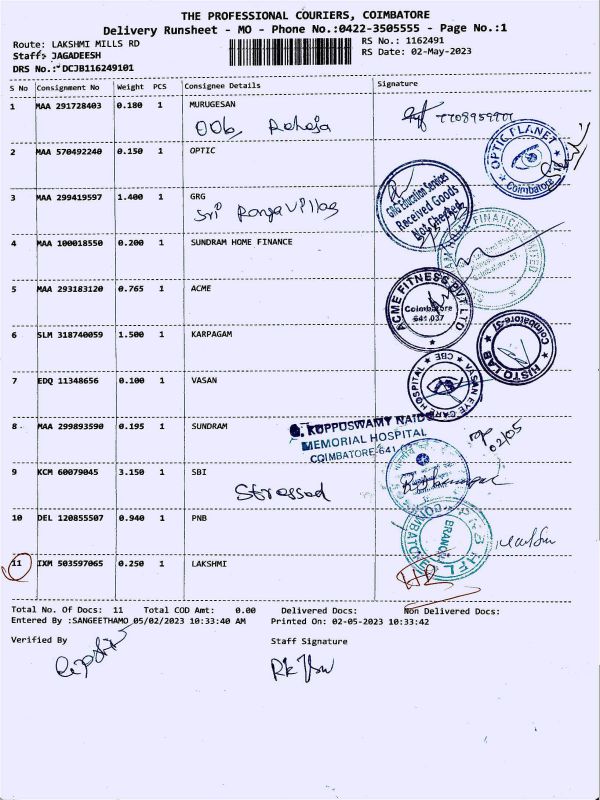 THE PROFESSIONAL COURIERS, COIMBATORE
Delivery Runsheet - MO - Phone No.:0422-3505555 - Page No.:1
Route: LAKSHMI MILLS RD
RS No.: 1162491
Staff: JAGADEESH
RS Date: 02-May-2023
DRS No.: DCJB116249101
S No Consignment No Weight PCS Consignee Details Signature
1 MAA 291728403 0.180 1 MURUGESAN
OOb Raheja
2 MAA 570492240 0.150 1 OPTIC
OPTIC PLANET
Coimbatore
3 MAA 299419597 1.400 1 GRG
Sri Ranga Villas
GRG Education Services
Received Goods
Not Checked
4 MAA 100018550 0.200 1 SUNDRAM HOME FINANCE
5 MAA 293183120 0.765 1 ACME
ACME FITNESS PVT LTD
Coimbatore
641 037
6 SLM 318740059 1.500 1 KARPAGAM
HISTO LAB
Coimbatore-37
7 EDQ 11348656 0.100 1 VASAN
VASAN EYE CARE HOSPITAL
CBE
8 MAA 299893590 0.195 1 SUNDRAM
G. KUPPUSWAMY NAIDU
MEMORIAL HOSPITAL
COIMBATORE-641
02/05
9 KCM 60079045 3.150 1 SBI
Stressed
10 DEL 120855507 0.940 1 PNB
BRANCH
11 IXM 503597065 0.250 1 LAKSHMI
Total No. Of Docs: 11 Total COD Amt: 0.00 Delivered Docs: Non Delivered Docs:
Entered By :SANGEETHAMO 05/02/2023 10:33:40 AM Printed On: 02-05-2023 10:33:42
Verified By Staff Signature